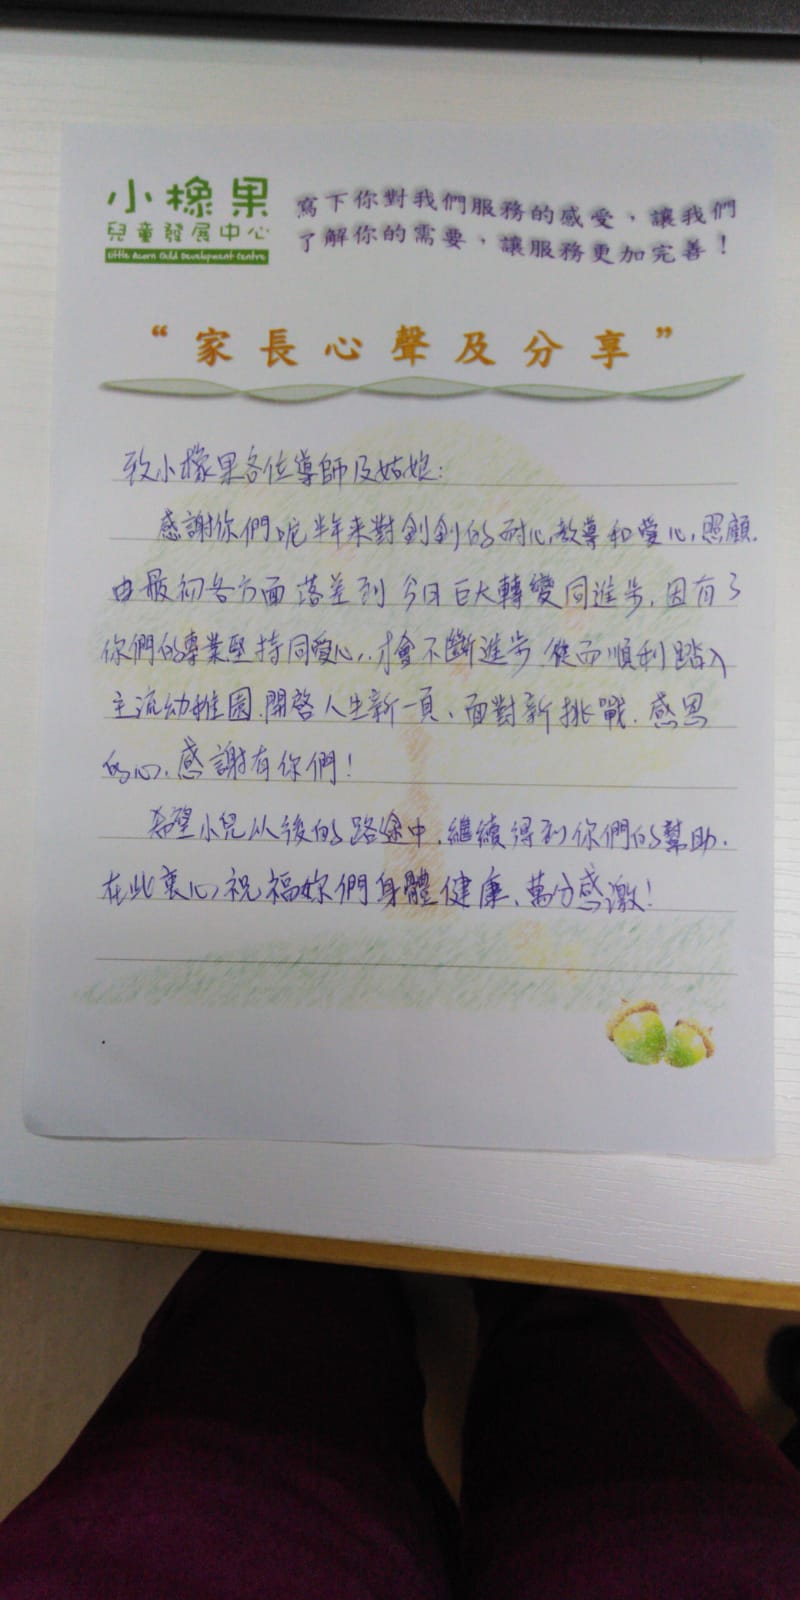 小橡果
兒童發展中心
Little Acorn Child Development Centre
寫下你對我們服務的感受，讓我們
了解你的需要，讓服務更加完善！
“家長心聲及分享”
致小橡果各位導師及姑娘：
感謝你們呢半年來對釗釗的耐心教導和愛心照顧.
由最初各方面落差到今日巨大轉變同進步，因有了
你們的專業堅持同愛心，才會不斷進步 從而順利踏入
主流幼稚園，開啓人生新一頁、面對新挑戰. 感恩
的心，感謝有你們！
希望小兒以後的路途中，繼續得到你們的幫助.
在此衷心祝福妳們身體健康、萬分感激！